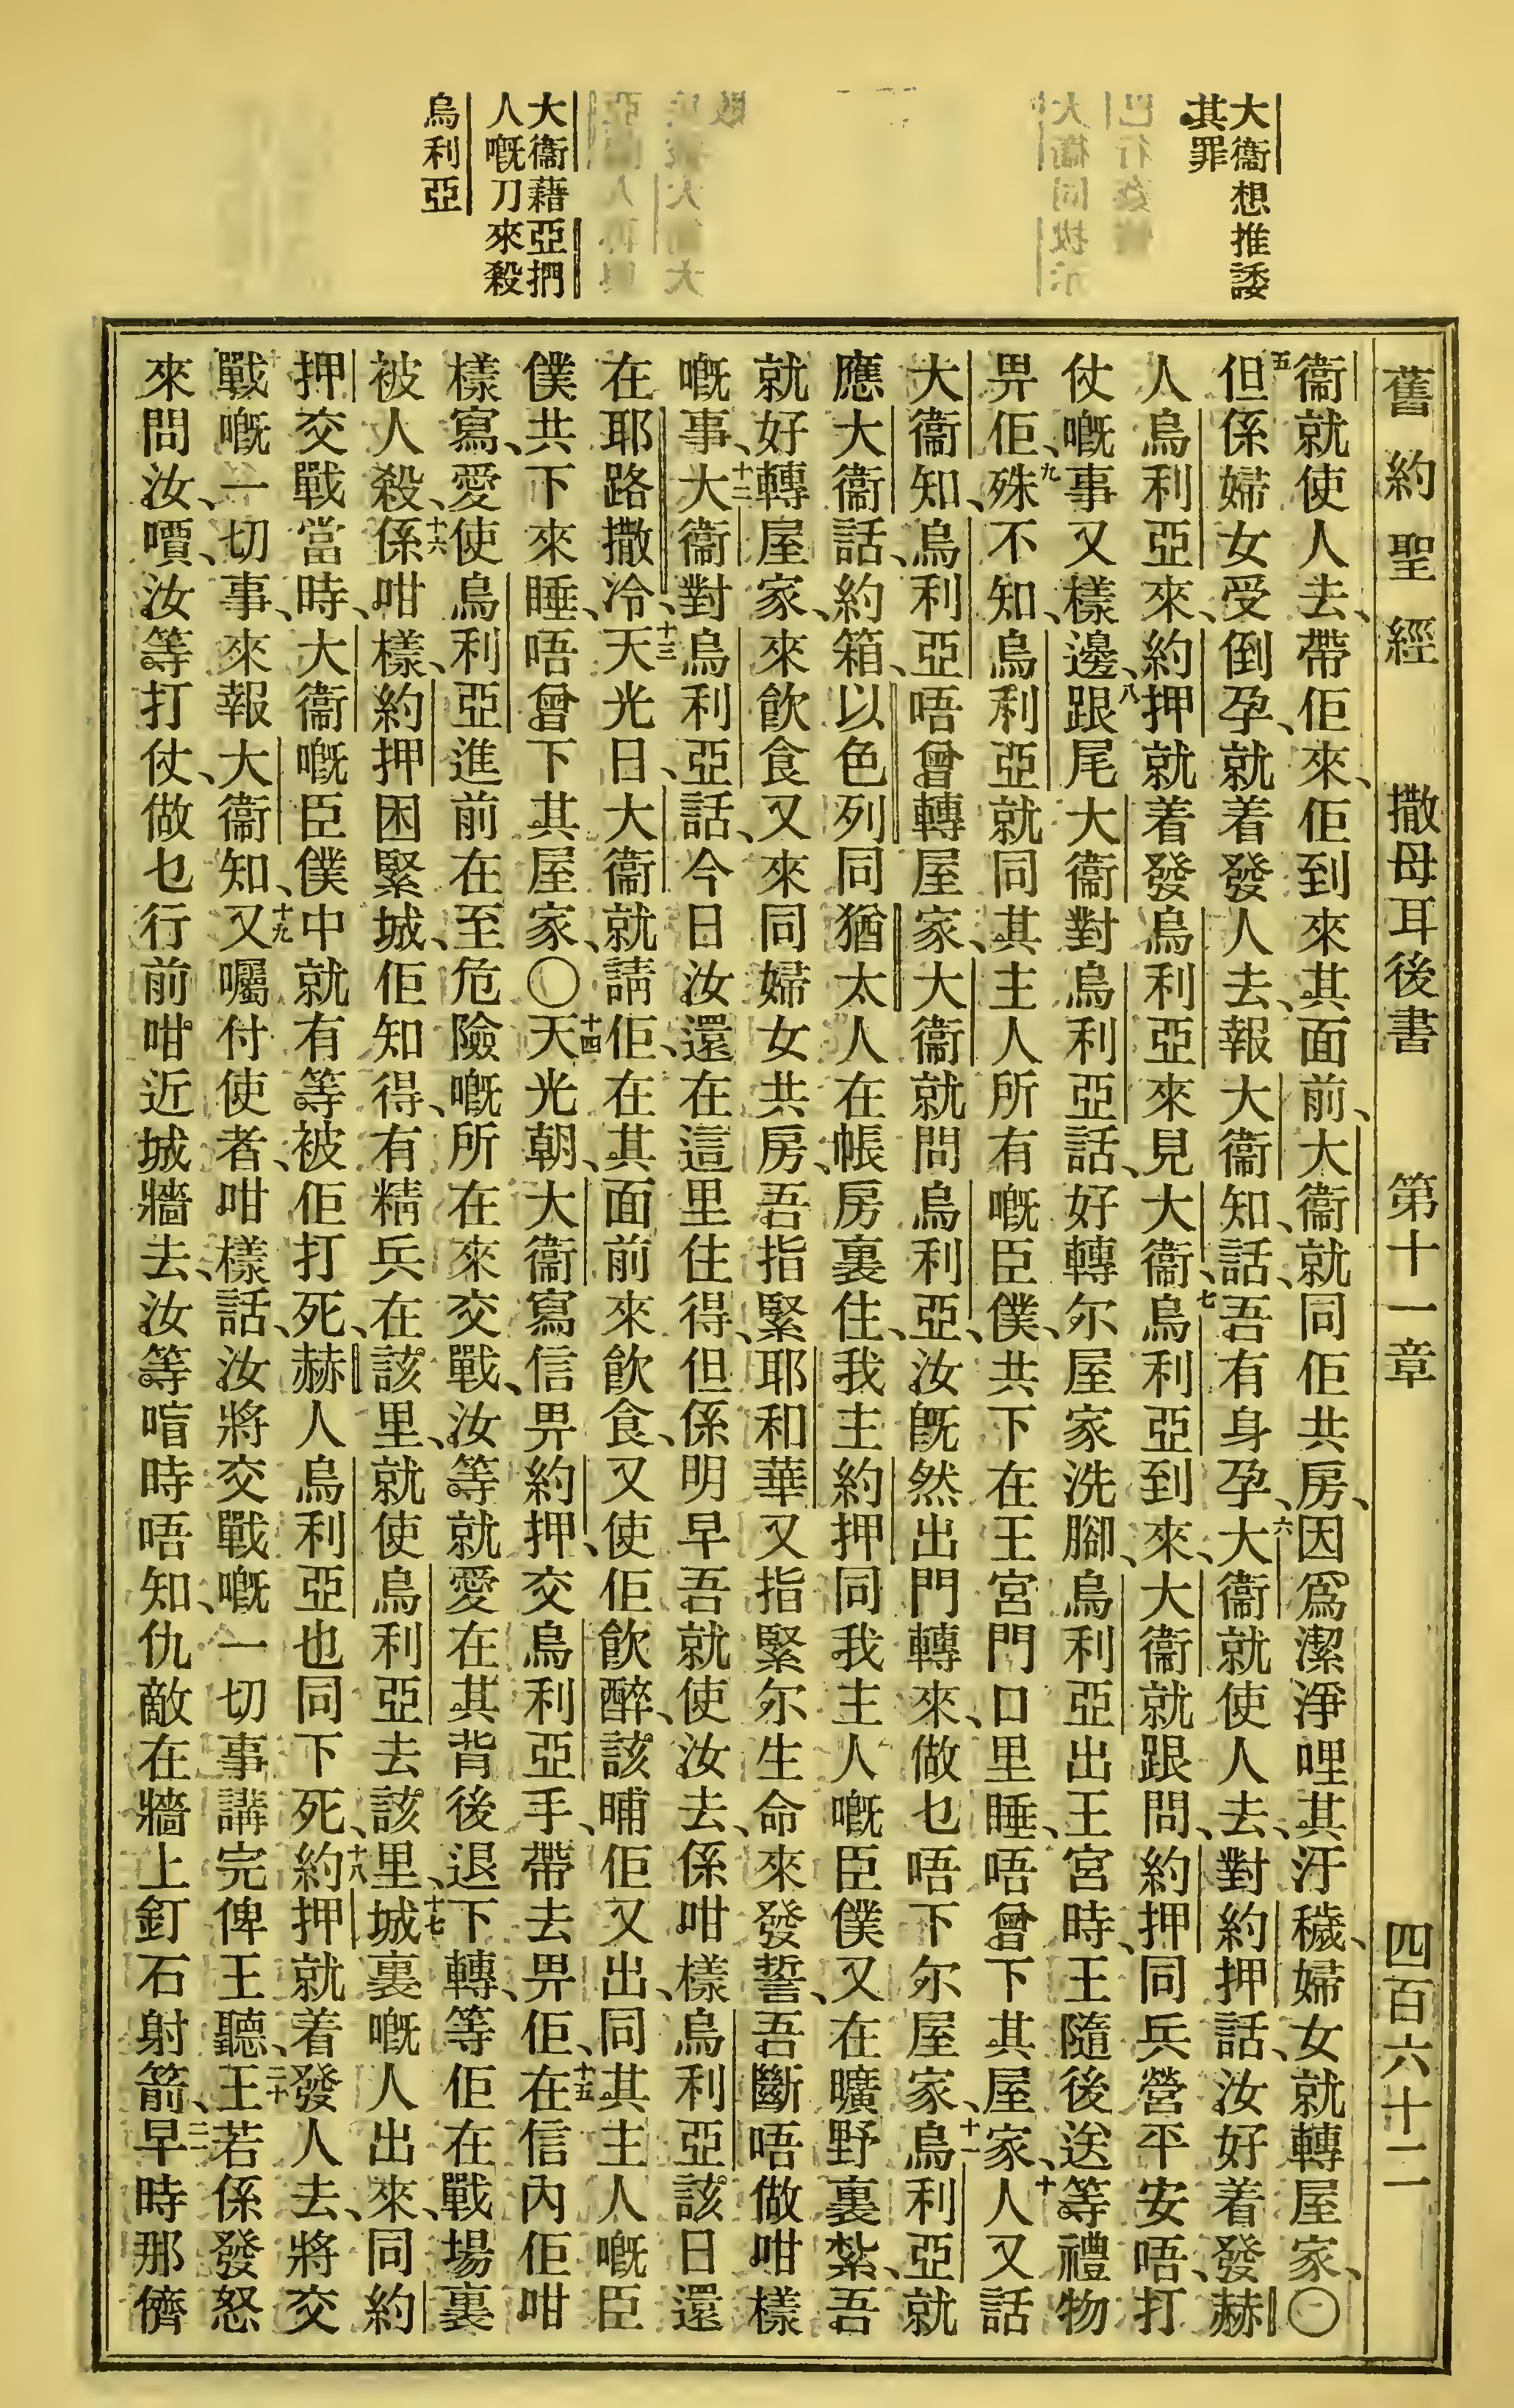 大衞想推諉
其罪
大衞藉亞捫
人嘅刀來殺
烏利亞
舊約聖經　撒母耳後書　第十一章　四百六十二
衞就使人去、帶佢來、佢到來其面前、大衞就同佢共房、因爲潔淨哩其汙穢、婦女就轉屋家、〇
五但係婦女受倒孕、就着發人去、報大衞知、話、吾有身孕、六大衞就使人去、對約押話、汝好着發赫
人烏利亞來、約押就着發烏利亞來見大衞、七烏利亞到來、大衞就跟問、約押同兵營平安唔、打
仗嘅事又樣邊、八跟尾大衞對烏利亞話、好轉尔屋家洗腳、烏利亞出王宮時、王隨後送等禮物
畀佢、九殊不知、烏利亞就同其主人所有嘅臣僕、共下在王宮門口里睡、唔曾下其屋家、十人又話
大衞知、烏利亞唔曾轉屋家、大衞就問烏利亞、汝旣然出門轉來、做乜唔下尔屋家、十一烏利亞就
應大衞話、約箱、以色列同猶太人在帳房裏住、我主約押同我主人嘅臣僕又在曠野裏紮、吾
就好轉屋家、來飮食又來同婦女共房、吾指緊耶和華又指緊尔生命來發誓、吾斷唔做咁樣
嘅事、十二大衞對烏利亞話、今日汝還在這里住得、但係明早吾就使汝去、係咁樣烏利亞該日還
在耶路撒冷、十三天光日、大衞就請佢、在其面前來飮食、又使佢飮醉、該晡佢又出、同其主人嘅臣
僕共下來睡、唔曾下其屋家、〇十四天光朝、大衞寫信畀約押、交烏利亞手、帶去畀佢、十五在信內佢咁
樣寫、愛使烏利亞進前在至危險嘅所在來交戰、汝等就愛在其背後退下轉、等佢在戰場裏
被人殺、十六係咁樣、約押困緊城、佢知得、有精兵在該里、就使烏利亞去該里、十七城裏嘅人出來、同約
押交戰當時、大衞嘅臣僕中就有等被佢打死、赫人烏利亞也同下死、十八約押就着發人去、將交
戰嘅一切事、來報大衞知、十九又囑付使者、咁樣話、汝將交戰嘅一切事講完俾王聽、二十王若係發怒
來問汝、嘪汝等打仗、做乜行前咁近城牆去、汝等喑時唔知、仇敵在牆上釘石射箭、二一早時那儕